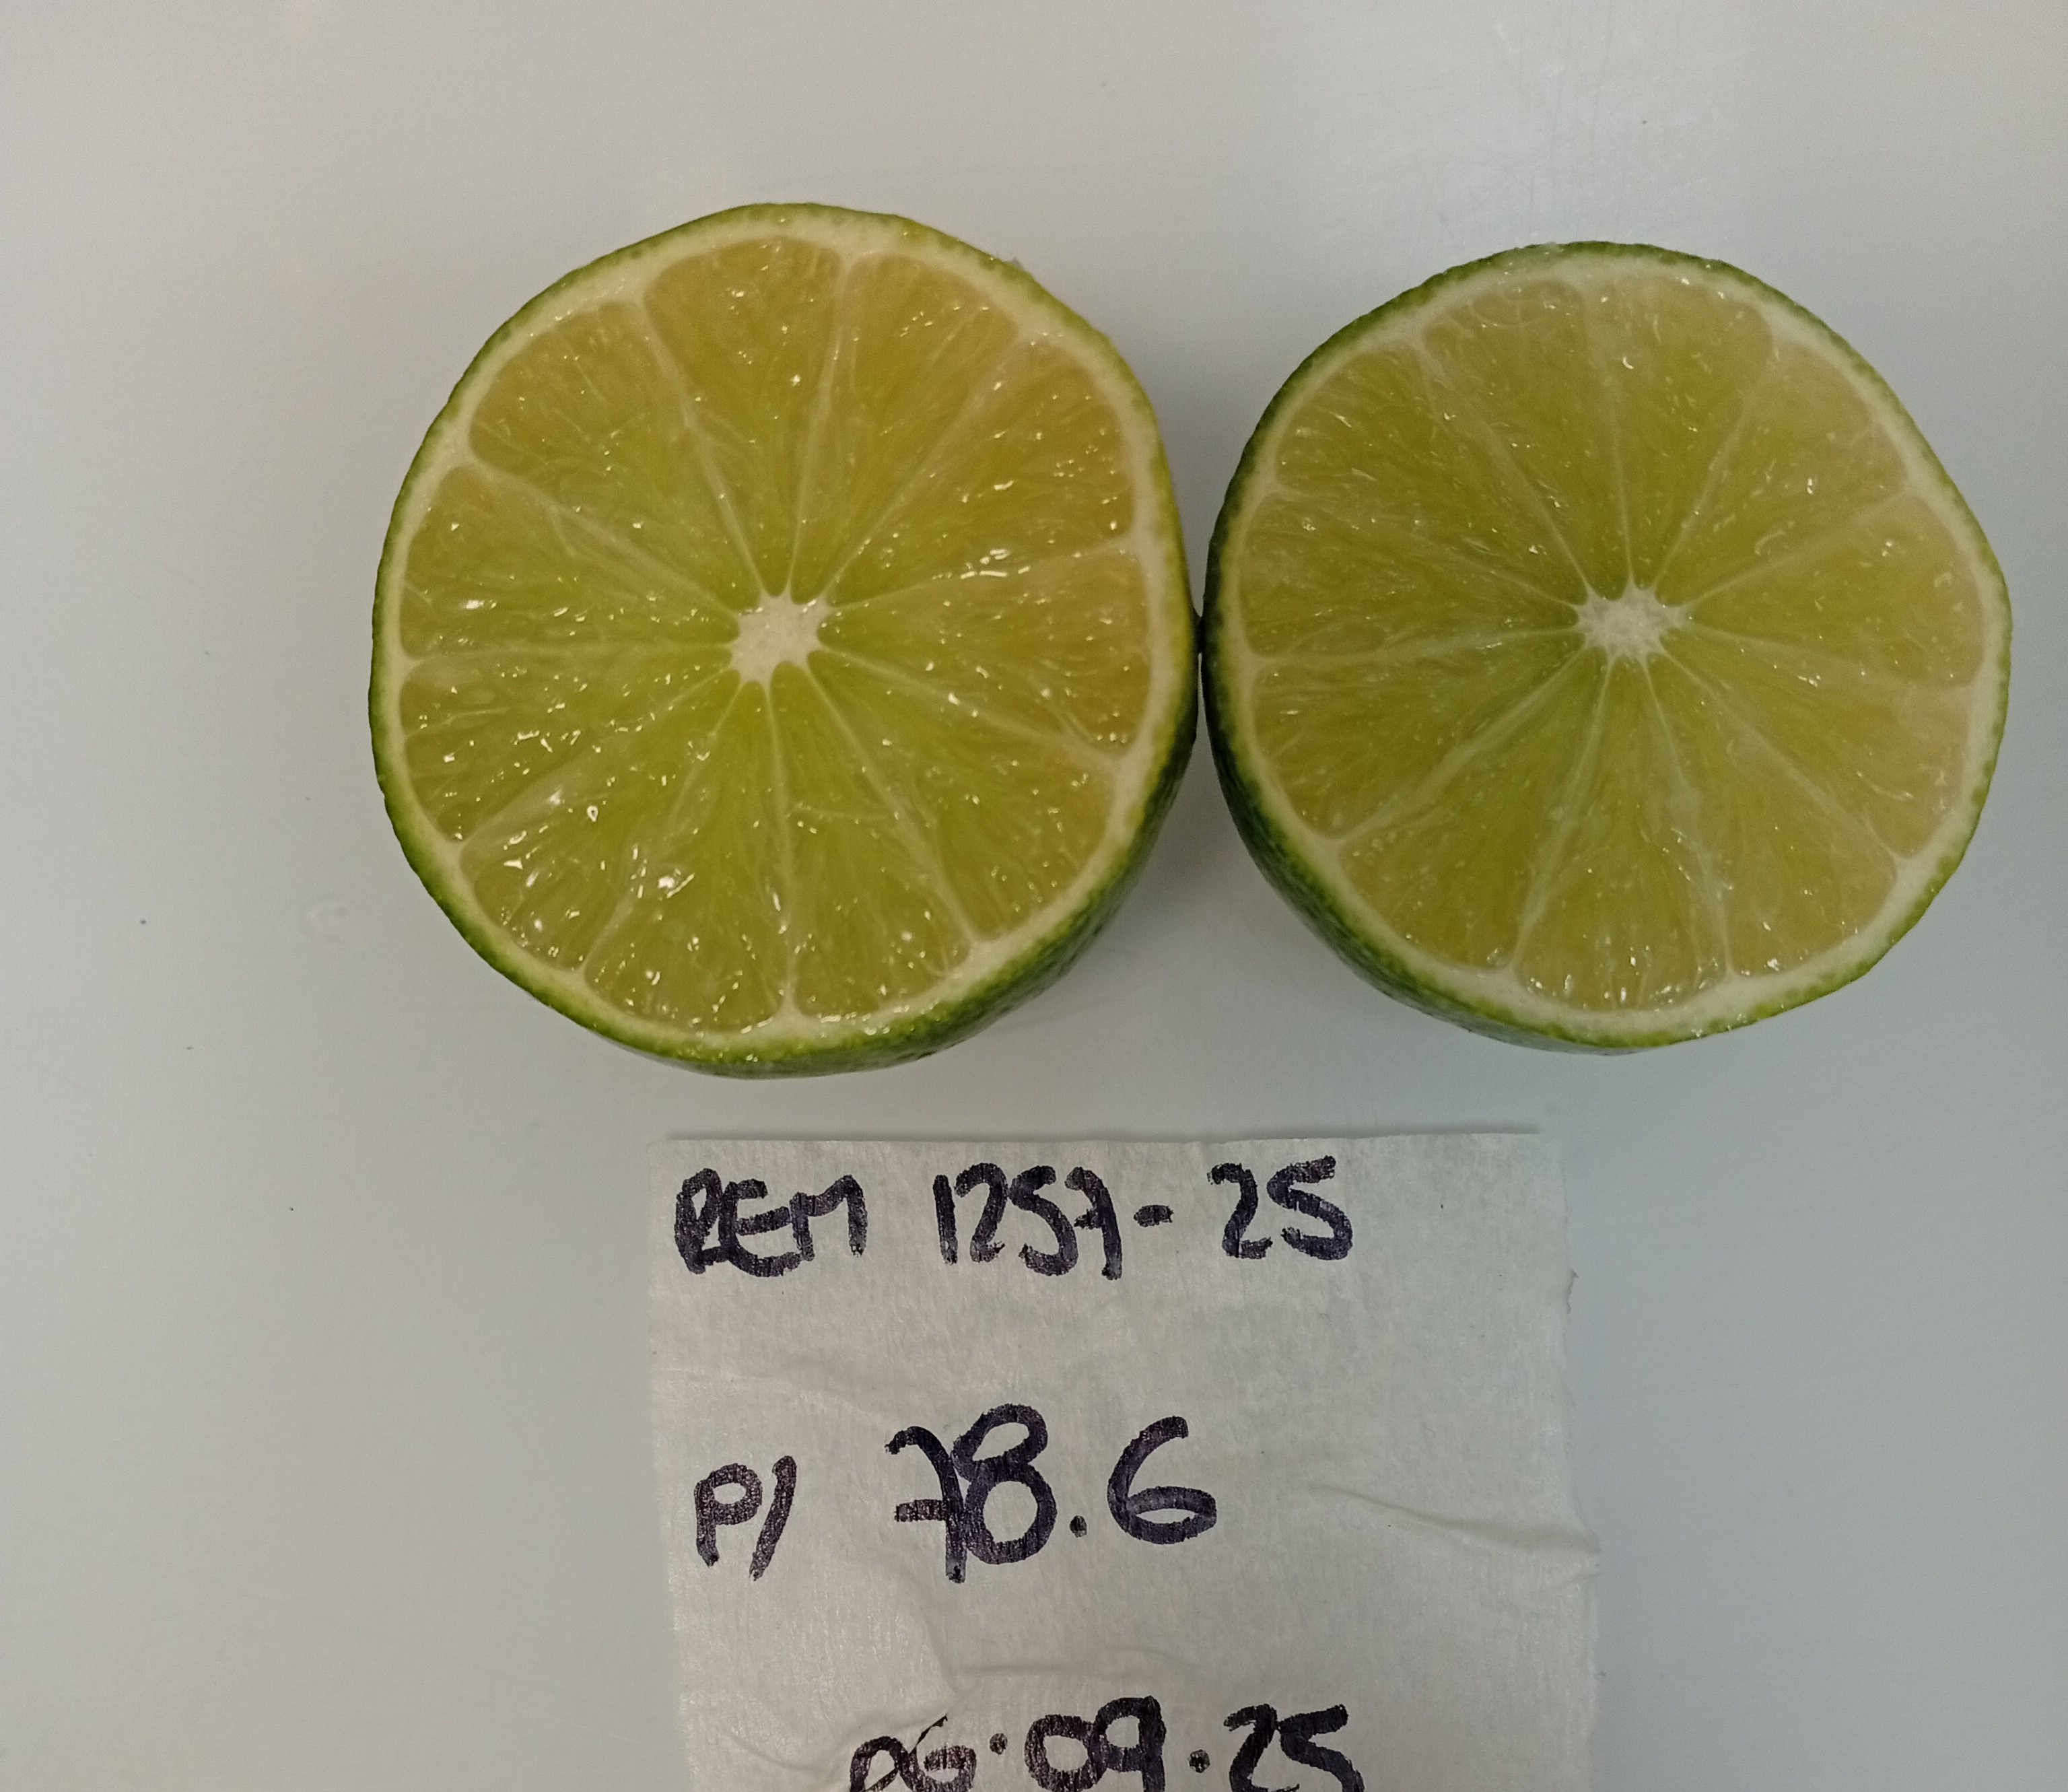 REM 1257-25
P/ 78.6
06.09.25